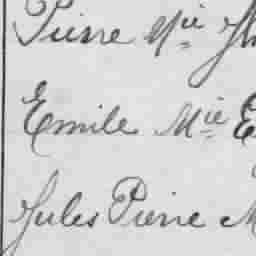 Pierre Mie
Emile Mie E
Jules Pierre M